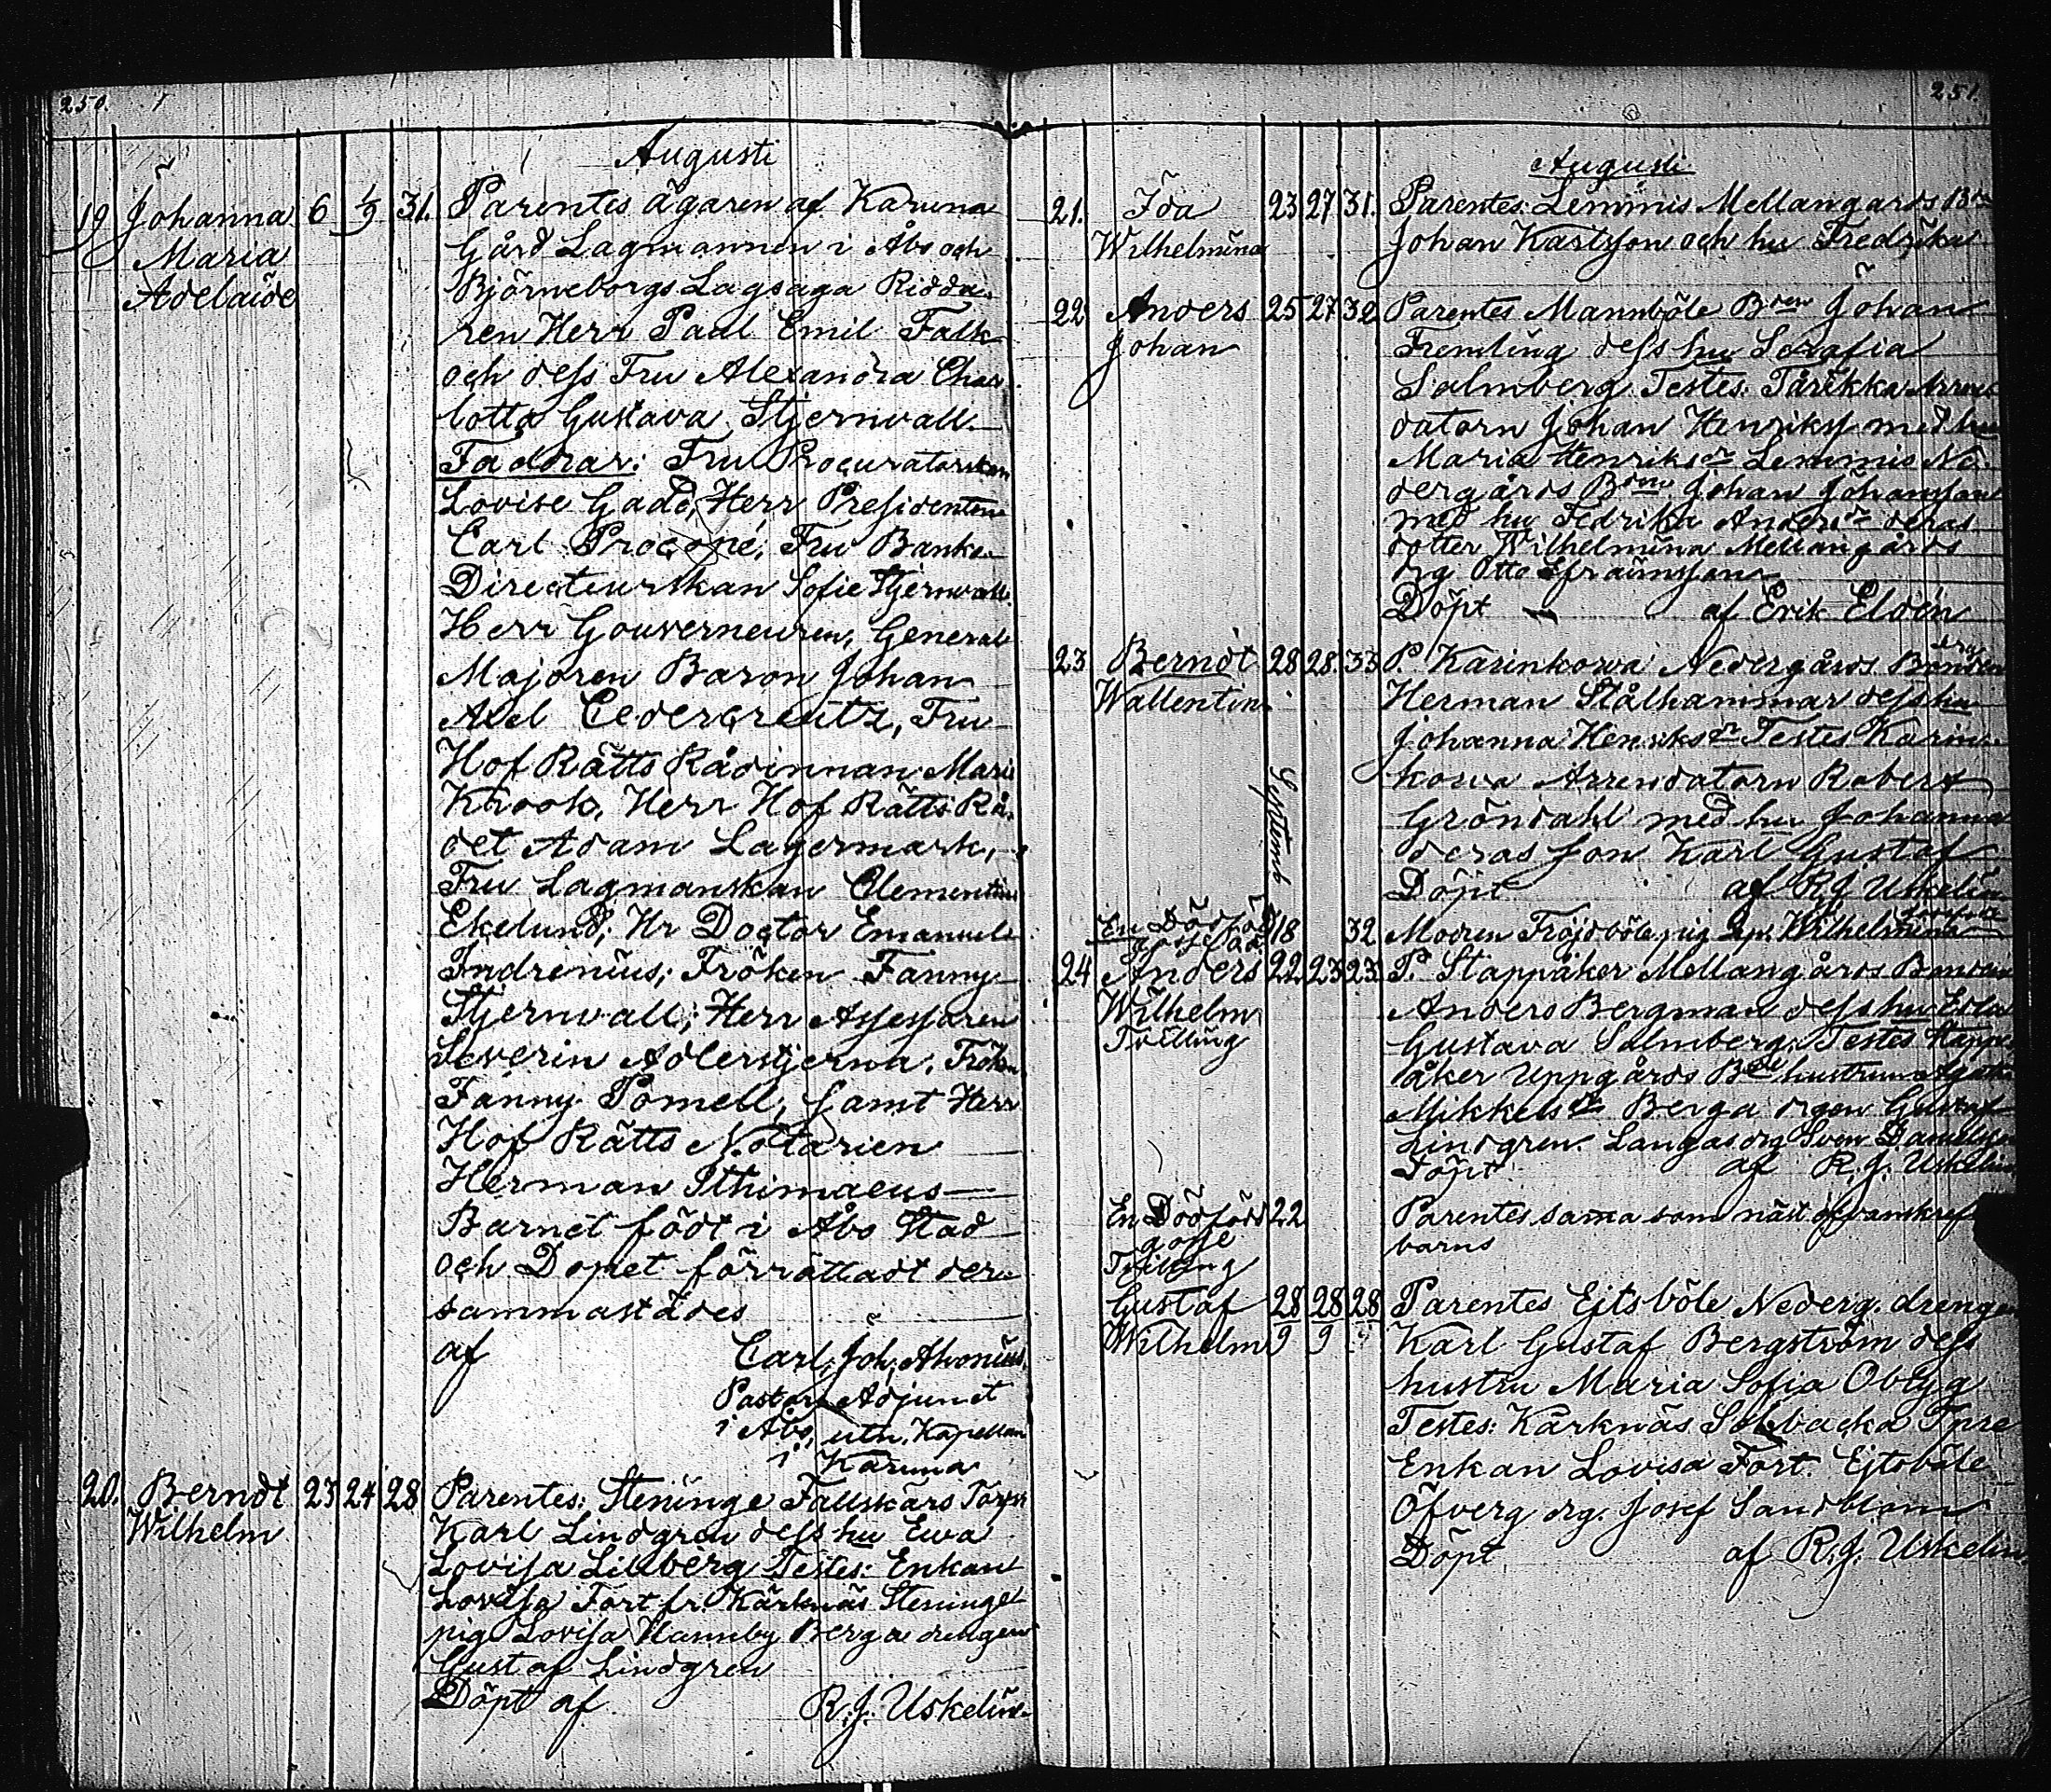 250.
Augusti
19 Johanna 6 1/9 31. Parentes ägaren af Karuna
Maria Gård Lagmannen i Åbo och
Adelaide Björneborgs Lagsaga Ridda-
ren Herr Paul Emil Falk
och dess Fru Alexandra Char-
lotta Gustava Stjernvall.
Faddrar: Fru Procuratorskan
Lovise Gadd; Herr Presidenten
Carl Procopé; Fru Banko
Directeurskan Sofie Stjernvall.
Herr Gouverneuren, General
Majoren Baron Johan
Axel Cedercreutz, Fru
Hof Rätts Rådinnan Marie
Krook, Herr Hof Rätts Rå-
det Adam Lagermark,
Fru Lagmanskan Clementine
Ekelund; Hr Doctor Emanuel
Indrenius; Fröken Fanny
Stjernvall; Herr Assessoren
Severin Adlerstjerna, Fröken
Fanny Pomell, samt Herr
Hof Rätts Notarien
Herman Ithimaeus
Barnet födt i Åbo Stad
och Dopet förrättadt der-
sammastädes
af Carl. Joh. Ahonius.
Pastors Adjunct
i Åbo, utn. Kapellan
i Karuna
20. Berndt 23 24 28 Parentes: Steninge Fallskärs Torp:
Wilhelm Karl Lindgren dess hu Ewa
Lovisa Lilberg Testes: Enkan
Lovisa Fort fr. Kärknäs Steninge
pig. Lovisa Hannby Berga drengen
Gustaf Lindgren
Döpt af R. J. Uskelin
251.
Augusti
21. Ida 23 27 31. Parentes: Lemmis Mellangårds Bden
Wilhelmina Johan Karlsson och hu Fredrika
22 Anders 25 27 32 Parentes Mannböle Bden Johan
Johan Fremling dess hu Serafia
Salmberg Testes: Tårikka Arren-
datorn Johan Henrikss med hu
Maria Henriksdr Lemmis Ne-
dergårds Bden Johan Johansson
med hu Fedrika Andersdr deras
dotter Wilhelmina Mellangårds
drg Otto Efraimsson
Döpt af Erik Eldén
23 Berndt 28 28. 33 P. Karinkorva Nedergårds Bonden
Wallentin Herman Stålhammar dess hu
Johanna Henriksdr Testes Karin-
korva Arrendatorn Robert
Gröndahl med hu Johanna
deras son Karl Gustaf
Döpt af R. J. Uskelin
Septemb
En Dödfödd 18 32 Modren Fröjdböle pig Wilhelmina
24 Anders 22 23 23 P. Stappåker Mellangårds Bonden
Wilhelm Anders Bergman dess hu Edla
Tvilling Gustava Salmberg. Testes Stapp-
åker Uppgårds Bde hustrun Agata
Mikkelsdr Berga drgen Gustaf
Lindgren. Langas drg Sven Danielsson
Döpt af R. J. Uskelin
En Dödfödd 22 Parentes sama som näst ofvanskref
gosse barns
Tvilling
Gustaf 28/9 28/9 28 Parentes Ejtsböle Nederg. drengen
Wilhelm Karl Gustaf Bergström dess
hustru Maria Sofia Oblyg
Testes: Kärknäs Solbacka Tpre
Enkan Lovisa Fort. Ejtsböle
Öfverg drg. Josef Sandblom
Döpt af R. J. Uskelin